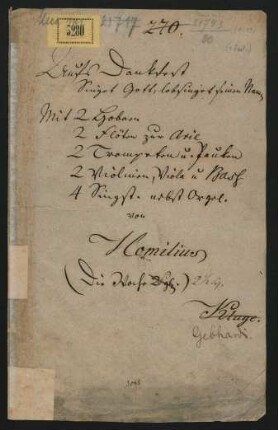 270.
5200
Aufs Dankfest
Singet Gott, lobsinget seinem Nam
Mit 2 Hoboen
2 Flöten zur Arie
2 Trompeten u. Pauken
2 Violinen, Viola u Bass
4 Singst. nebst Orgel.
von
Homilius
Kluge.
Gebhardi.